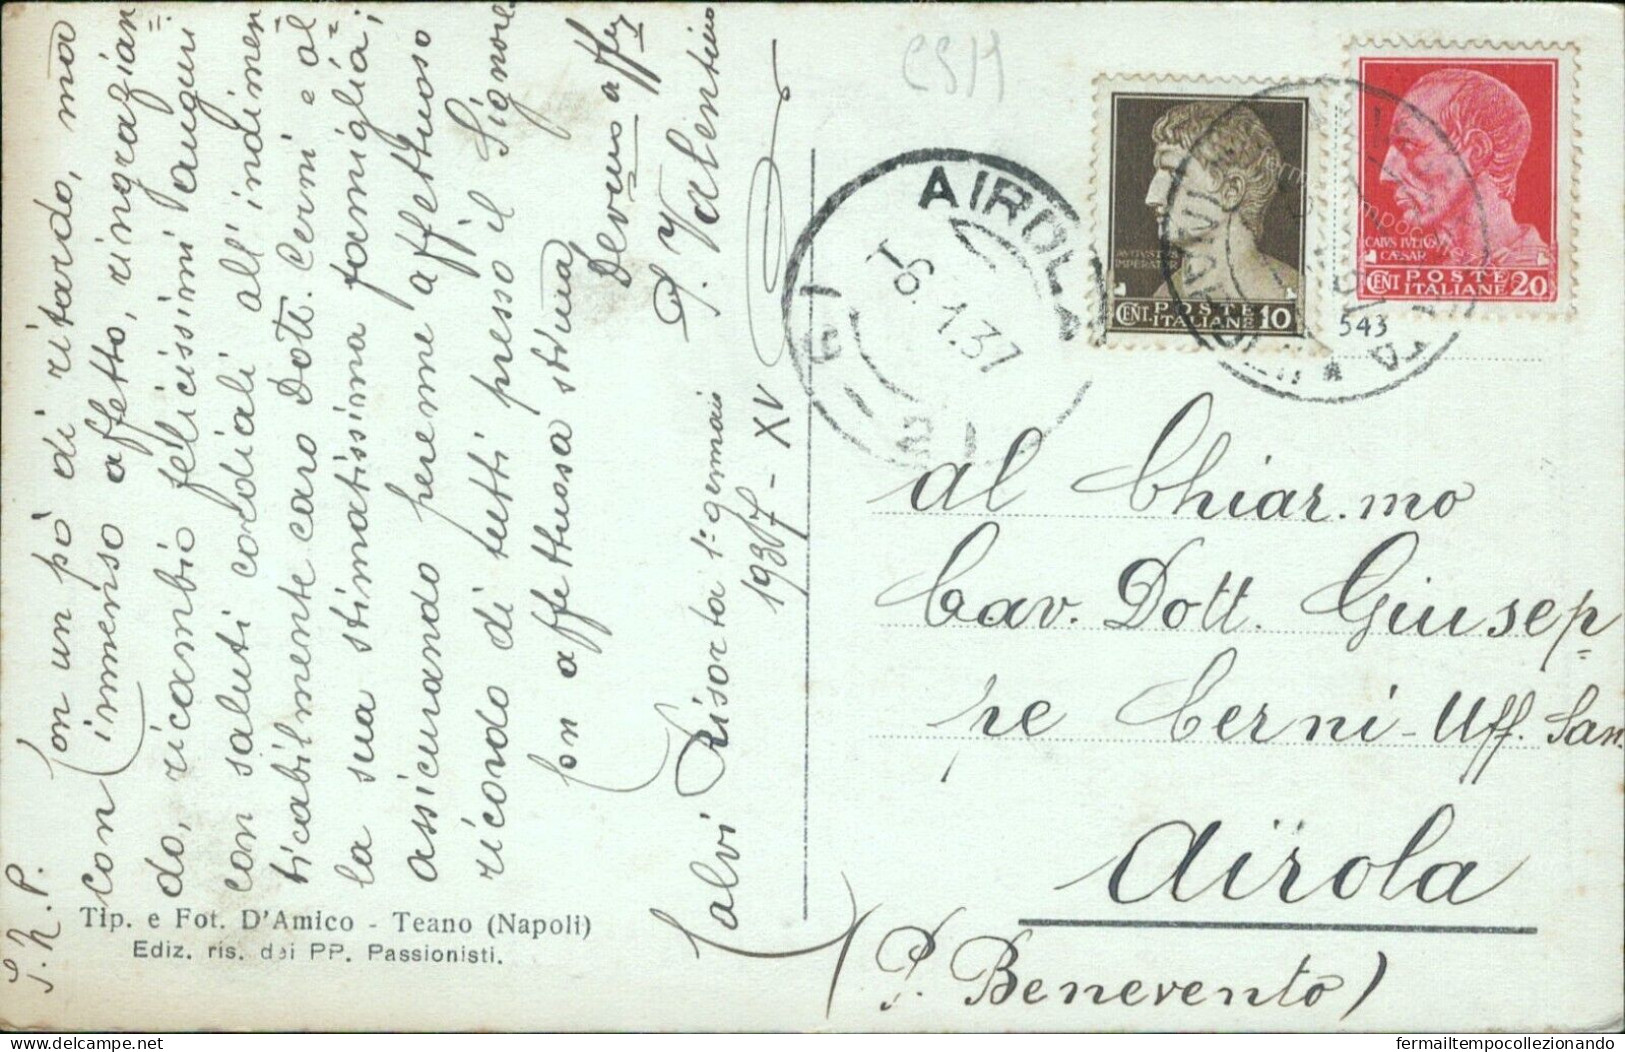 P. N. P.
Con un pò di ritardo, ma
con immenso affetto, ringrazian=
do, ricambio felicissimi auguri
con saluti cordiali all'indimen
ticabilmente caro Dott. Cerni e al=
la sua stimatissima famiglia;
assicurando perenne affettuoso
ricordo di tutti presso il Signore
Con affettuosa stima
Devmo affmo
P. Valentino
Calvi Risorta 1° gennaio
1937 - XV
Tip. e Fot. D'Amico - Teano (Napoli)
Ediz. ris. dei PP. Passionisti.
AIROLA
6.1.37
AVGVSTVS
IMPERATOR
CENT. POSTE
ITALIANE 10
CAIVS IVLIVS
CAESAR
CENT POSTE
ITALIANE 20
543
al Chiar.mo
Cav. Dott. Giusep=
pe Cerni - Uff. San.
Airola
(P. Benevento)
fermailtempocollezionando.delcampe.net
fermailtempocollezionando